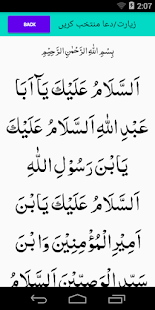 2:07
BACK زیارت/دعا منتخب کریں
بِسْمِ اللهِ الرَّحْمٰنِ الرَّحِيْمِ
اَلسَّلَامُ عَلَيْكَ يَا اَبَا
عَبْدِ اللهِ اَلسَّلَامُ عَلَيْكَ
يَا بْنَ رَسُوْلِ اللهِ
اَلسَّلَامُ عَلَيْكَ يَا بْنَ
اَمِيْرِ الْمُؤْمِنِيْنَ وَابْنَ
سَيِّدِ الْوَصِيِّيْنَ اَلسَّلَامُ